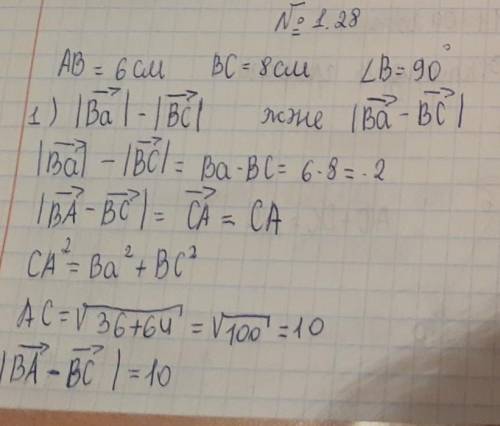 № 1.28
AB = 6 см BC = 8 см ∠B = 90°
1) |Ba| - |BC| және |Ba - BC|
|Ba| - |BC| = Ba - BC = 6 - 8 = -2
|BA - BC| = CA = CA
CA² = Ba² + BC²
AC = √36+64 = √100 = 10
|BA - BC| = 10